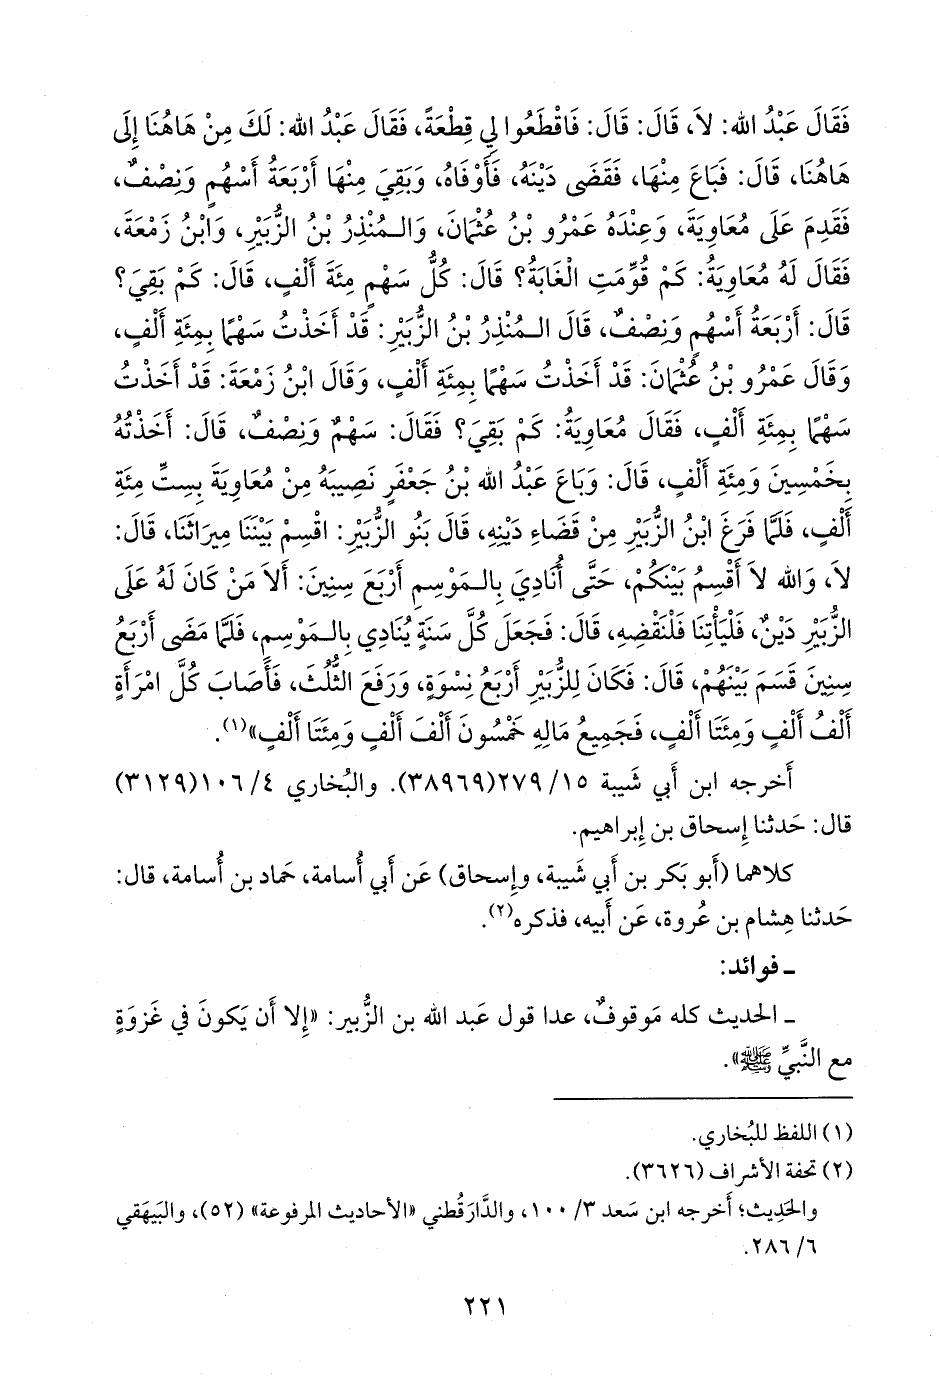 فَقَالَ عَبْدُ الله: لاَ، قَالَ: قَالَ: فَاقْطَعُوا لِي قِطْعَةً، فَقَالَ عَبْدُ الله: لَكَ مِنْ هَاهُنَا إِلَى
هَاهُنَا، قَالَ: فَبَاعَ مِنْهَا، فَقَضَى دَيْنَهُ، فَأَوْفَاهُ، وَبَقِيَ مِنْهَا أَرْبَعَةُ أَسْهُمٍ وَنِصْفٌ،
فَقَدِمَ عَلَى مُعَاوِيَةَ، وَعِنْدَهُ عَمْرُو بْنُ عُثْمَانَ، وَالـمُنْذِرُ بْنُ الزُّبَيْرِ، وَابْنُ زَمْعَةَ،
فَقَالَ لَهُ مُعَاوِيَةُ: كَمْ قُوِّمَتِ الْغَابَةُ؟ قَالَ: كُلُّ سَهْمٍ مِئَةَ أَلْفٍ، قَالَ: كَمْ بَقِيَ؟
قَالَ: أَرْبَعَةُ أَسْهُمٍ وَنِصْفٌ، قَالَ الـمُنْذِرُ بْنُ الزُّبَيْرِ: قَدْ أَخَذْتُ سَهْمًا بِمِئَةِ أَلْفٍ،
وَقَالَ عَمْرُو بْنُ عُثْمَانَ: قَدْ أَخَذْتُ سَهْمًا بِمِئَةِ أَلْفٍ، وَقَالَ ابْنُ زَمْعَةَ: قَدْ أَخَذْتُ
سَهْمًا بِمِئَةِ أَلْفٍ، فَقَالَ مُعَاوِيَةُ: كَمْ بَقِيَ؟ فَقَالَ: سَهْمٌ وَنِصْفٌ، قَالَ: أَخَذْتُهُ
بِخَمْسِينَ وَمِئَةِ أَلْفٍ، قَالَ: وَبَاعَ عَبْدُ الله بْنُ جَعْفَرٍ نَصِيبَهُ مِنْ مُعَاوِيَةَ بِسِتِّ مِئَةِ
أَلْفٍ، فَلَمَّا فَرَغَ ابْنُ الزُّبَيْرِ مِنْ قَضَاءِ دَيْنِهِ، قَالَ بَنُو الزُّبَيْرِ: اقْسِمْ بَيْنَنَا مِيرَاثَنَا، قَالَ:
لاَ، وَالله لاَ أَقْسِمُ بَيْنَكُمْ، حَتَّى أُنَادِيَ بِالـمَوْسِمِ أَرْبَعَ سِنِينَ: أَلاَ مَنْ كَانَ لَهُ عَلَى
الزُّبَيْرِ دَيْنٌ، فَلْيَأْتِنَا فَلْنَقْضِهِ، قَالَ: فَجَعَلَ كُلَّ سَنَةٍ يُنَادِي بِالـمَوْسِمِ، فَلَمَّا مَضَى أَرْبَعُ
سِنِينَ قَسَمَ بَيْنَهُمْ، قَالَ: فَكَانَ لِلزُّبَيْرِ أَرْبَعُ نِسْوَةٍ، وَرَفَعَ الثُّلُثَ، فَأَصَابَ كُلَّ امْرَأَةٍ
أَلْفُ أَلْفٍ وَمِئَتَا أَلْفٍ، فَجَمِيعُ مَالِهِ خَمْسُونَ أَلْفَ أَلْفٍ وَمِئَتَا أَلْفٍ»(١).
أَخرجه ابن أَبي شَيبة ١٥/ ٢٧٩(٣٨٩٦٩). والبُخاري ٤/ ١٠٦(٣١٢٩)
قال: حَدثنا إِسحاق بن إِبراهيم.
كلاهما (أَبو بَكر بن أَبي شَيبة، وإِسحاق) عَن أَبي أُسامة، حَماد بن أُسامة، قال:
حَدثنا هِشام بن عُروة، عَن أَبيه، فذكره(٢).
ـ فوائد:
ـ الحديث كله مَوقوفٌ، عدا قول عَبد الله بن الزُّبير: «إِلا أَن يَكونَ في غَزوَةٍ
مع النَّبيِّ ﷺ».
(١) اللفظ للبُخاري.
(٢) تحفة الأشراف (٣٦٢٦).
والحَدِيث؛ أَخرجه ابن سَعد ٣/ ١٠٠، والدَّارَقُطني «الأحاديث المرفوعة» (٥٢)، والبَيهَقي
٦/ ٢٨٦.
٢٢١